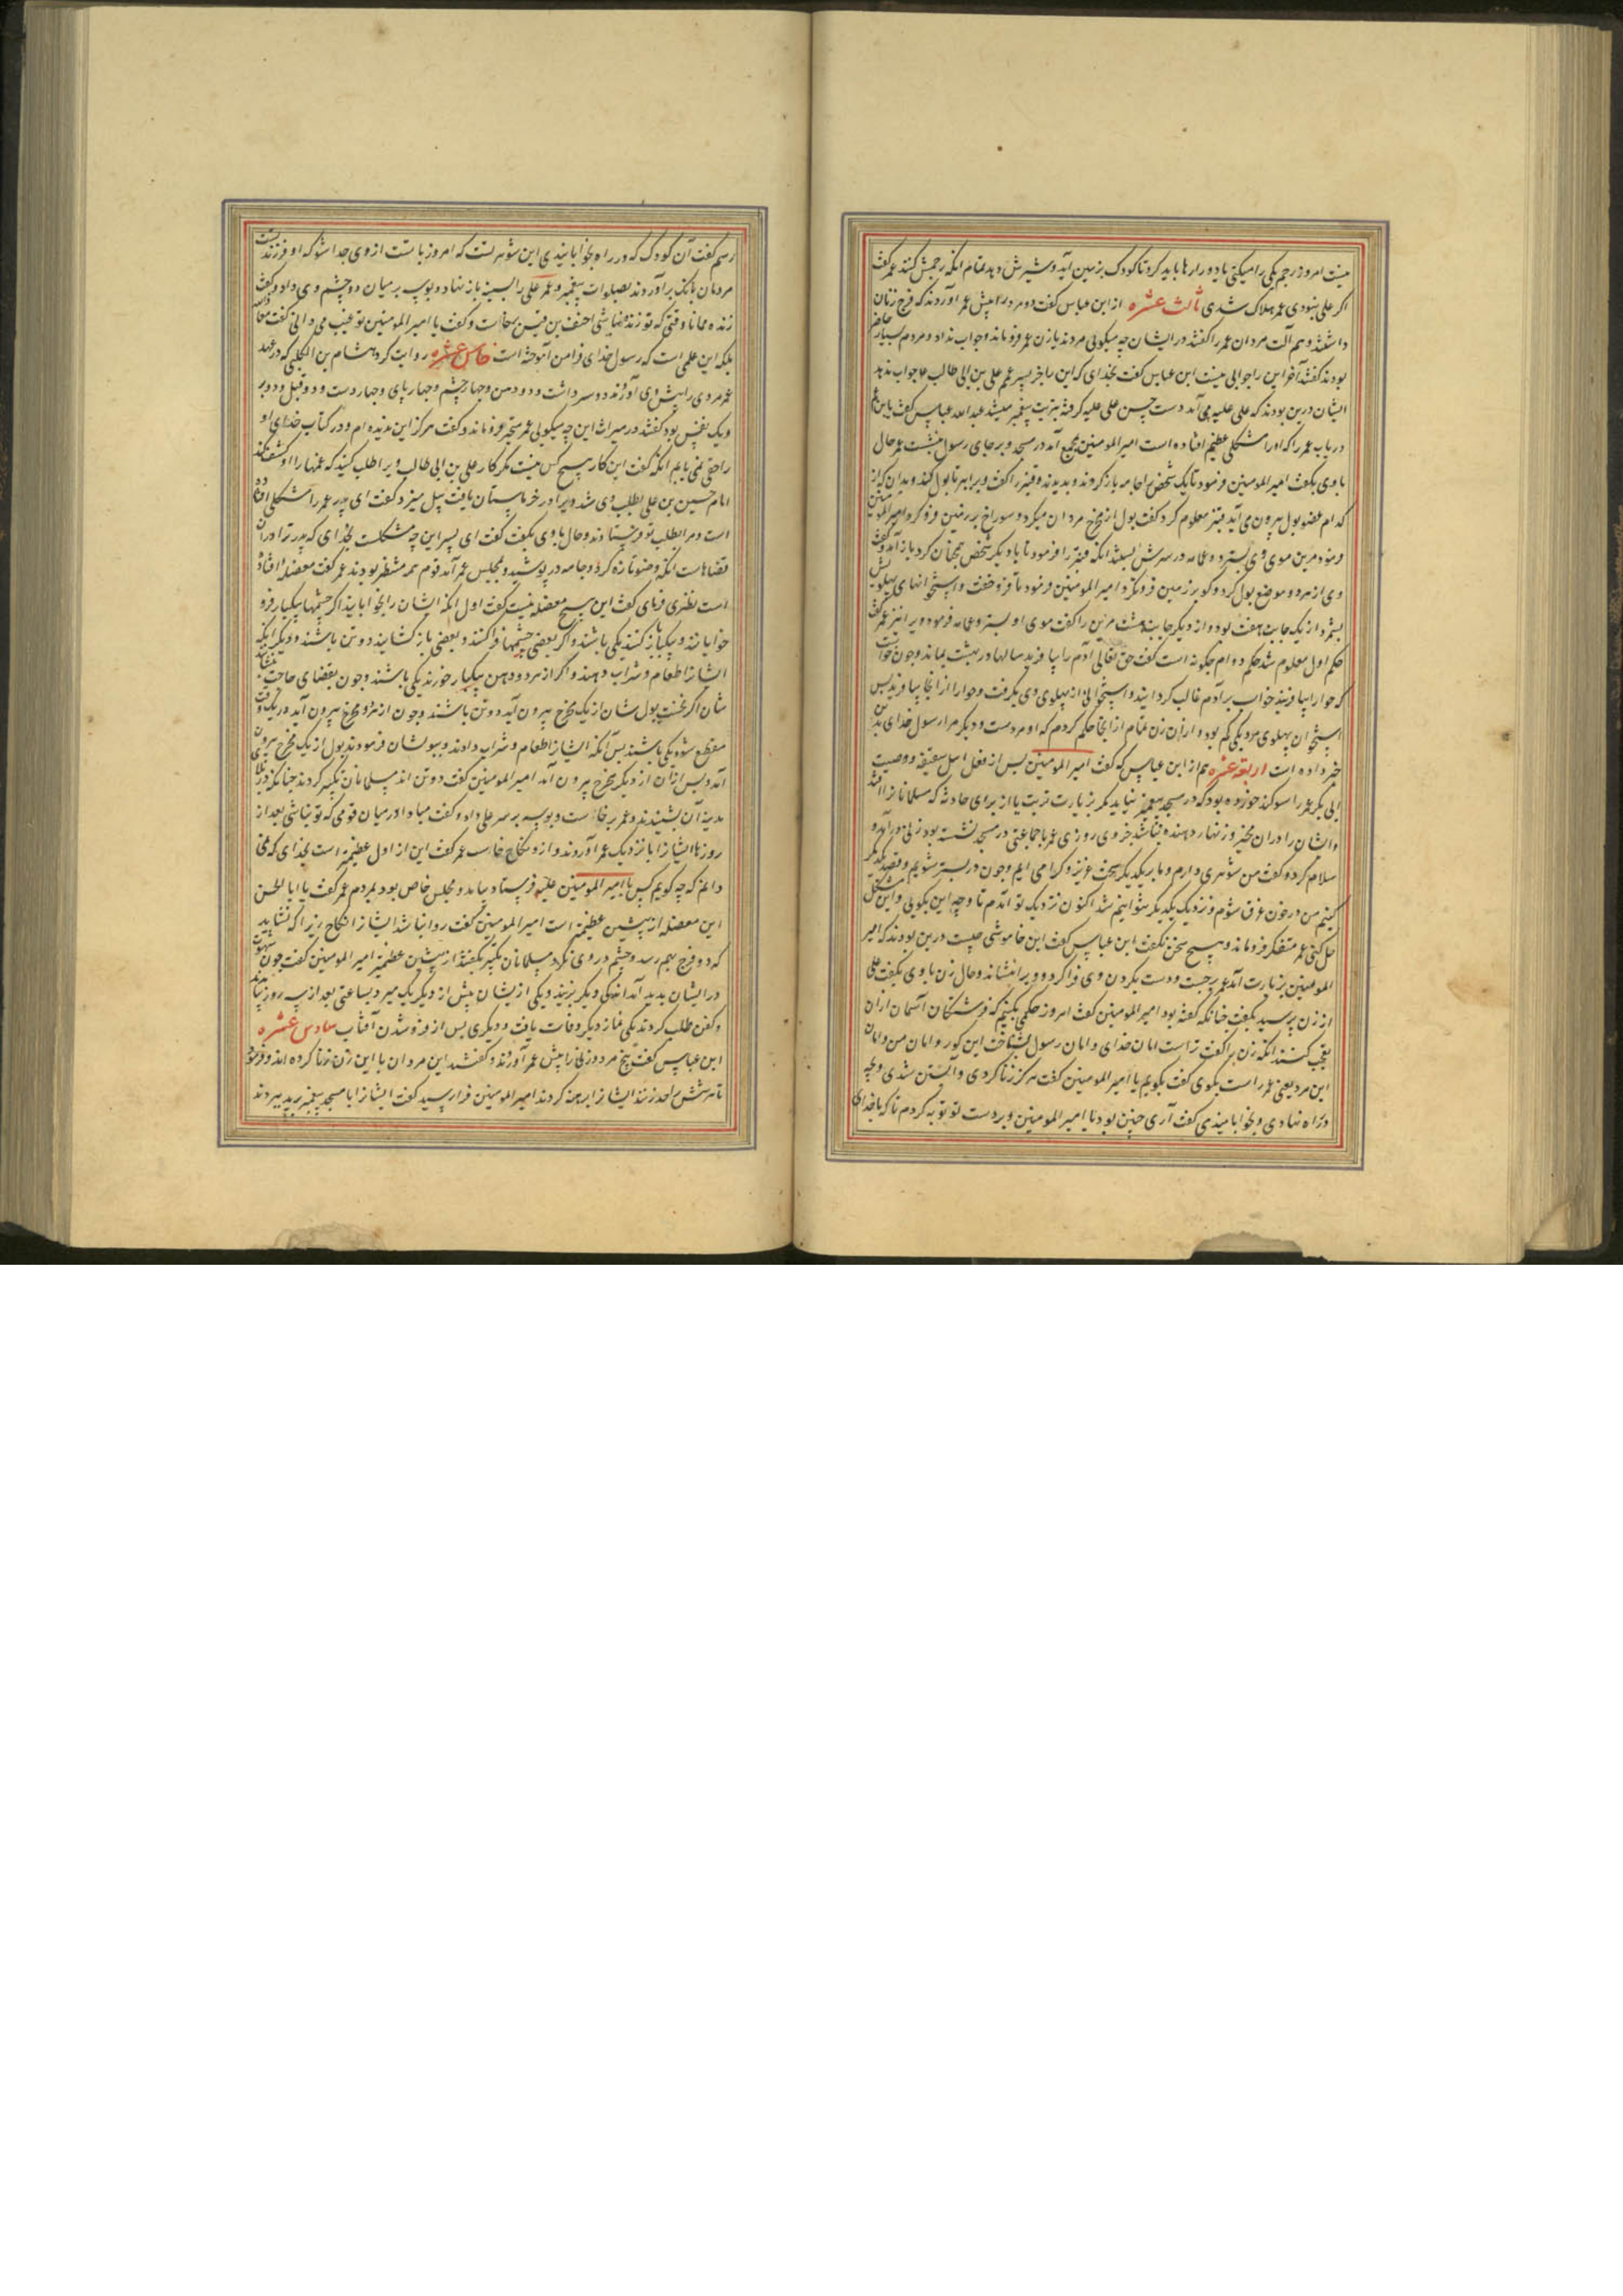 نیست امروز رجم یکی را میکنی یا دو را رها باید کرد تا کودک بزمین آید و شیرش دهد تمام آنکه رجمش کنند عمر گفت
اکر علی نبودی عمر هلاک شدی ثالث عشره از ابن عباس گفت دو مرد را پیش عمر آوردند که فرج زنان
داشتند و هم آلت مردان عمر را گفتند در ایشان چه میکویی مردند یا زن عمر فروماند و جواب نداد و مردم بسیار حاضر
بودند گفتند آخر این را جوابی نیست ابن عباس گفت بخدای که این را جز پسر عمم علی بن ابی طالب جواب ندهد
ایشان درین بودند که علی علیه می آمد دست حسین علی علیه کرفته بزیارت پیغمبر میشد عبدالله عباس گفت یا ابن عم
دریاب عمر را که او را مشکلی عظیم افتاده است امیرالمومنین بمجمع آمد در مسجد و بر جای رسول بنشست عمر حال
با وی بگفت امیرالمومنین فرمود تا یک شخص را جامه باز کردند و بدیدند و قنبر را گفت ویرا ببر تا بول کند و بدان که از
کدام عضو بول بیرون می آید قنبر معلوم کرد گفت بول از مخرج مردان میکرد و سوراخ بر زمین فرو کرد امیرالمومنین
فرمود مرین موی وی بستردو عمامه در سرش بستند آنکه قنبر را فرمود تا با دیکر شخص همچنان کرد باز آمد و گفت
وی از هر دو موضع بول کرد و کو بر زمین فرو نکرد امیرالمومنین فرمود تا فرو خفت و استخوانهای پهلویش
بشمرد از یک جانب هفت بود و از دیکر جانب هشت مزین را گفت موی او بسترو عمامه فرمود ویرا نیز عمر گفت
حکم اول معلوم شد حکم دوام چکونه است گفت حق تعالی آدم را بیافرید سالها در بهشت بماند و چون خواست
که حوا را بیافریند خواب بر آدم غالب کردانید و استخوانی از پهلوی وی بکرفت و حوا را از انجا بیافرید پس
استخوان پهلوی مرد یکی کم بود و از آن زن تمام از انجا حکم کردم که او مردست و دیکر مرا رسول خدای بدین
خبر داده است اربعة عشره هم از ابن عباس که گفت امیرالمومنین پس از فعل اهل سقیفه و وصیت
ابی بکر عمر را سوکند خورده بود که در مسجد پیغمبر نیاید مکر بزیارت تربت یا از برای حادثه که مسلمانانرا افتد
و ایشان را در ان مخبر و زنهار دهنده نباشد جز وی روزی عمر با جماعتی در مسجد نشسته بود زنی درآمد و
سلام کرد و گفت من شوهری دارم و ما بر یکدیکر سخت عزیز و کرامی ایم و چون در بستر شویم و قصد یکدیکر
کنیم من در خون غرق شوم و نزدیک یکدیکر نتوانیم شد اکنون نزدیک تو آمدم تا وجه این بکویی و این مشکل
حل کنی عمر متفکر فروماند و هیچ سخن نگفت ابن عباس گفت این خاموشی چیست درین بودند که امیر
المومنین بزیارت آمد عمر برجست و دست بکردن وی فرا کرد و ویرا بنشاند و حال زن با وی بگفت علی
از زن پرسید بگفت چنانکه گفته بود امیرالمومنین گفت امروز حکمی بکنیم که فرشتکان آسمان از ان
تعجب کنند آنکه زن را گفت تراست امان خدای و امان رسول بشناخت این کور و امان من و امان
این مرد یعنی عمر راست بکوی گفت بکویم یا امیرالمومنین گفت هرکز زنا کردی و آبستن شدی و بچه
در راه نهادی و بخوابانیدی گفت آری چنین بود یا امیرالمومنین و بر دست تو توبه کردم تا که با خدای
رسم گفت آن کودک که در راه بخوابانیدی این شوهر تست که امروز با تست از وی جدا شو که او فرزند تست
مردمان بانک برآوردند بصلوات پیغمبر و عمر علی را بسینه باز نهاد و بوسه بر میان دو چشم وی داد و گفت
زنده ممانا وقتی که تو زنده نباشی احنف بن قیس برخاست و گفت یا امیرالمومنین تو غیب می دانی گفت معاذ الله
بلکه این علمی است که رسول خدای فرا من آموخته است خامس عشره روایت کرد هشام بن الکلبی که در عهد
عمر مردی را پیش وی آوردند دو سر داشت و دو دهن و چهار چشم و چهار پای و چهار دست و دو قبل و دو دبر
و یک نفس بود گفتند در میراث این چه میکویی عمر متحیر فروماند و گفت هرکز این ندیده ام و در کتاب خدای او
را حقی نمی یابم آنکه گفت این کار هیچ کس نیست مکر کار علی بن ابی طالب ویرا طلب کنید که غمها را او کشف کند
امام حسین بن علی بطلب وی شد ویرا در خرماستان یافت بیل میزد گفت ای پدر عمر را مشکلی افتاده
است و مرا بطلب تو فرستادند و حال با وی بگفت گفت ای پسر این چه مشکلست بخدای که پدر ترا در ان
قضاهاست آنکه وضو تازه کرد و جامه در پوشید و بمجلس عمر آمد قوم همه منتظر بودند عمر گفت معضله افتاده
است نظری فرمای گفت این هیچ معضله نیست گفت اول آنکه ایشان را بخوابانید اکر چشمها بیکبار فرو
خوابانند و بیکبار باز کنند یکی باشند و اکر بعضی چشمها فرا کنند و بعضی باز کشایند دو تن باشند و دیکر آنکه
ایشانرا طعام و شراب دهند و اکر از هر دو دهن بیکبار خورند یکی باشند و چون بقضای حاجت بنشانند
شان اکر نخست بول شان از یک مخرج بیرون آید دو تن باشند و چون از هر دو مخرج بیرون آید در یک وقت
منقطع شود یکی باشند پس آنکه ایشانرا طعام و شراب دادند و ببولشان فرمودند بول از یک مخرج بیرون
آمد و پس از ان از دیکر مخرج بیرون آمد امیرالمومنین گفت دو تن اند مسلمانان تکبیر کردند چنانکه در همه
مدینه آن بشنیدند و عمر برخاست و بوسه بر سر علی داد و گفت مبادا در میان قومی که تو نباشی بعد از
روزها ایشانرا باز نزدیک عمر آوردند و ازو نکاح خواست عمر گفت این از اول عظیمتر است بخدای که نمی
دانم که چه کویم کس با امیرالمومنین علیه فرستاد بیامد و مجلس خاص بود بمردم عمر گفت یا ابا الحسن
این معضله از پیشین عظیمتر است امیرالمومنین گفت روا نباشد ایشانرا نکاح زیرا که نشاید
که دو فرج بهم رسد و چشم در وی نکرد مسلمانان تکبیر بگفتند از پیشین عظیمتر امیرالمومنین گفت چون شهوت
در ایشان پدید آمد اندکی دیکر بزیند و یکی از یشان پیش از دیکر یک میرد بساعتی بعد از سه روز بیامدند
و کفن طلب کردند یکی نماز دیکر وفات یافت و دیکری پس از فرو شدن آفتاب سادس عشره
ابن عباس گفت پنج مرد و زنی را پیش عمر آوردند و گفتند این مردان با این زن زنا کرده اند و فرمود
تا هر شش را حد زنند ایشانرا برهنه کردند امیرالمومنین فرا رسید گفت ایشانرا با مسجد پیغمبر برید ببردند